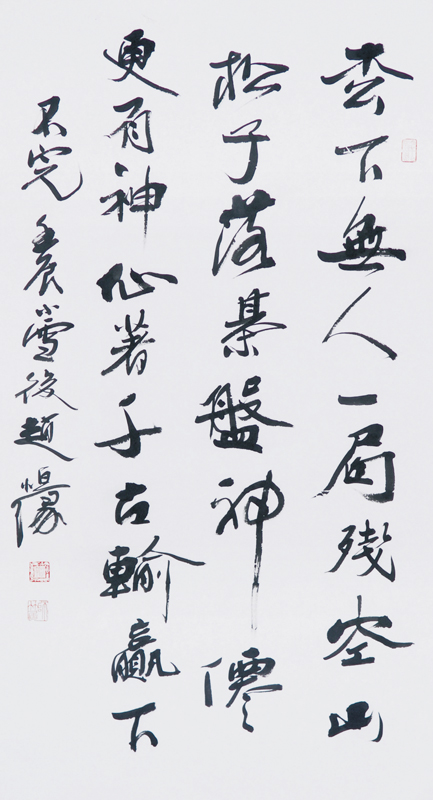 枩下無人一局殘空山
松子落棊盤神僊
更有神仙著千古輸贏下
不完 壬辰小雪後趙